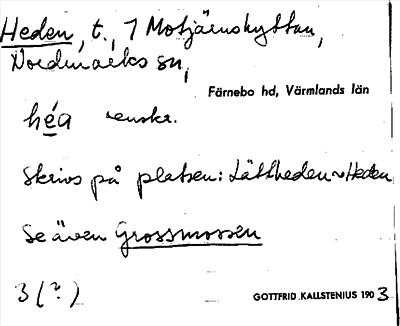 Heden, t., 7 Motjärnshyttan,
Nordmarks sn,
Färnebo hd, Värmlands län
héa
Skrivs på platsen: Lättheden ~ Heden
Se även Grossmossen
3 (?)
GOTTFRID KALLSTENIUS 1903